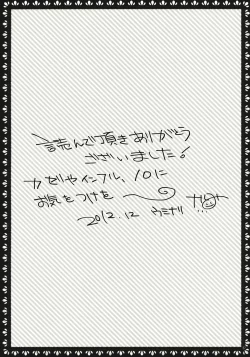 読んで頂きありがとう
ございました!
カゼやインフル、ノロに
お気をつけを
2012.12 ウミナリ